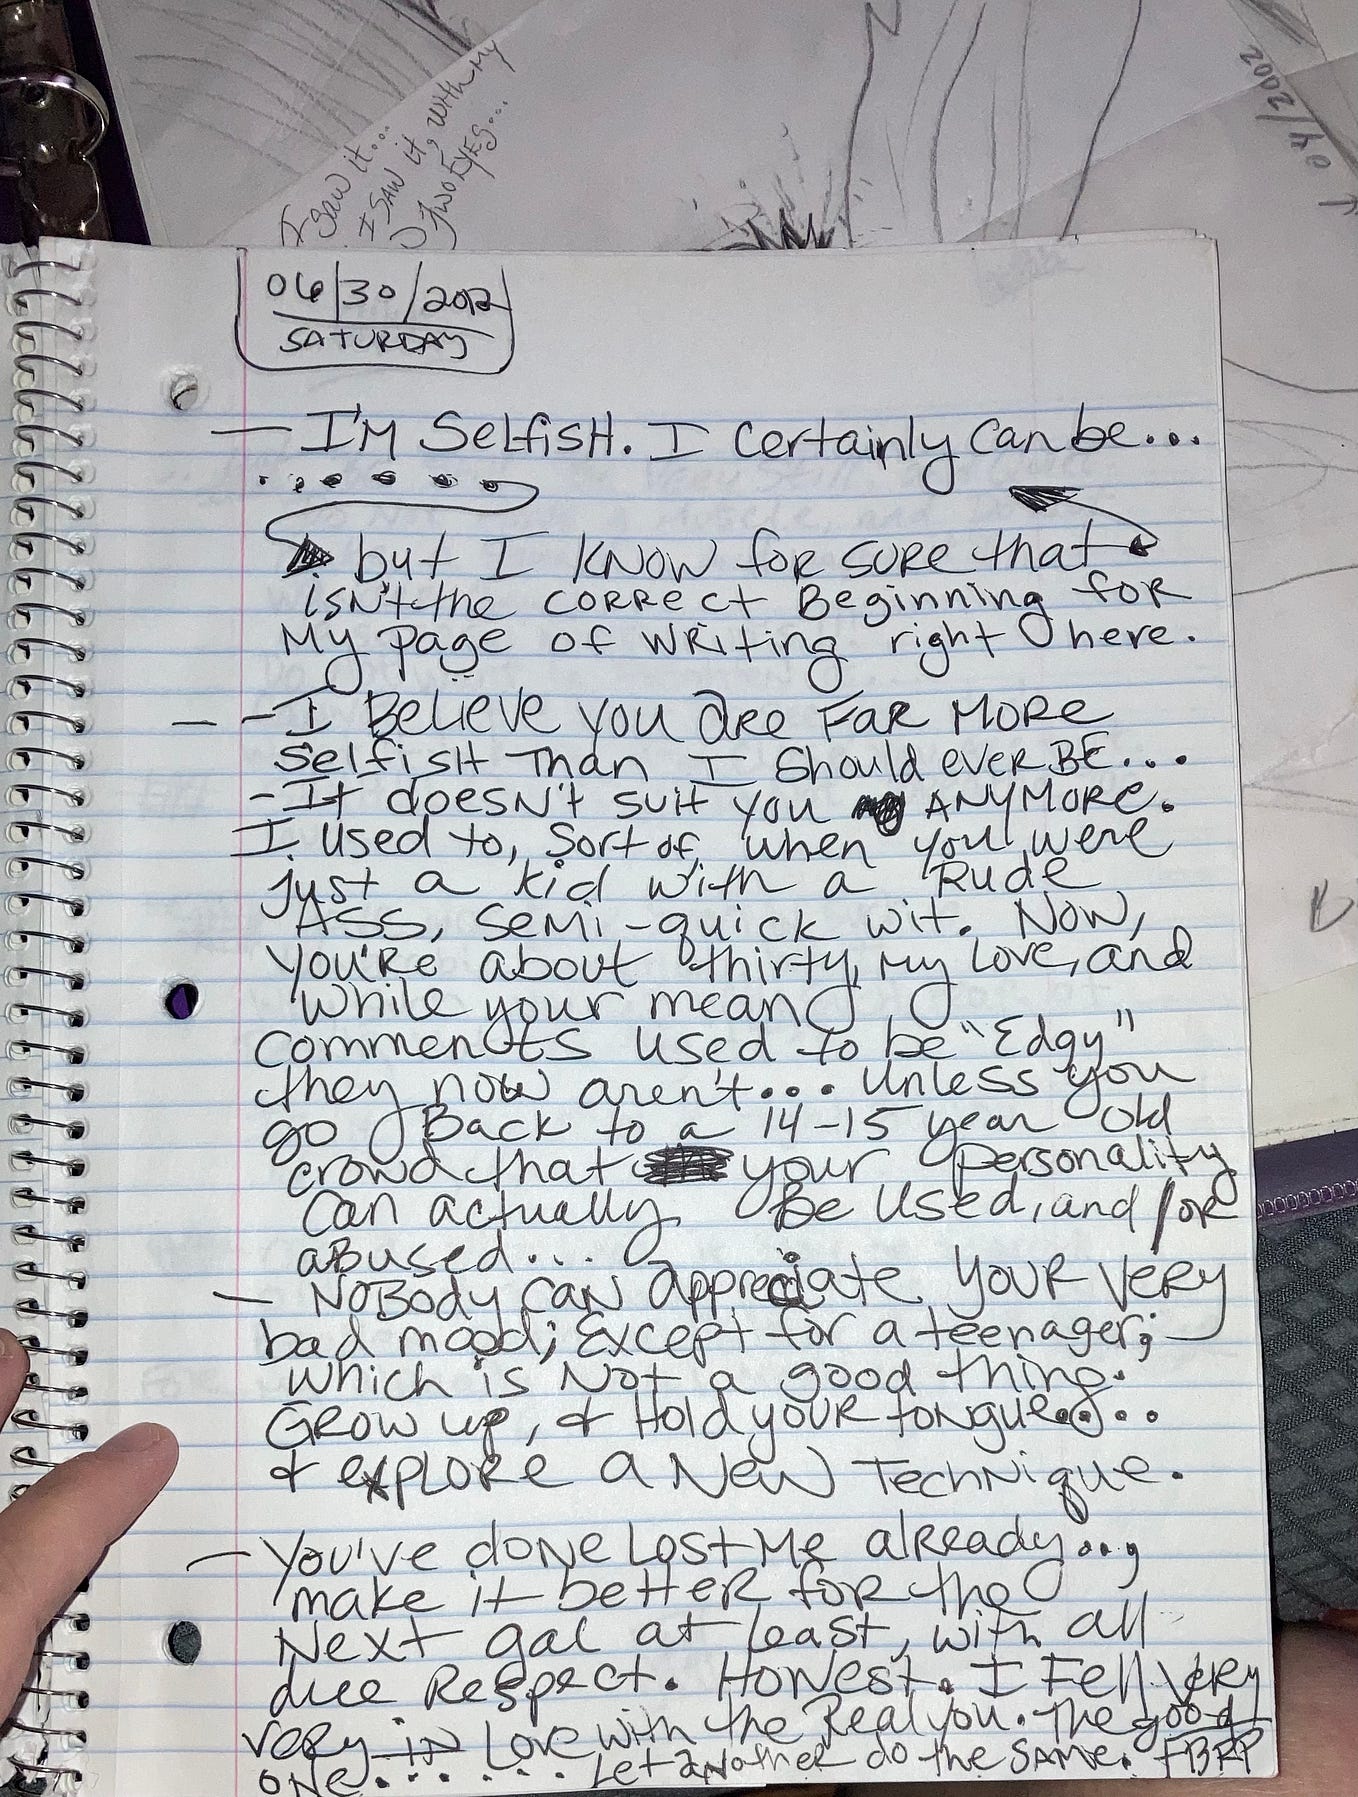 I saw it...
I SAW it, with My
TWO EYES...
04/2002
06/30/2012
SATURDAY
— I'M SelfisH. I certainly can be...
but I KNOW foR SURE that
isN't the coRRect Beginning foR
My page of wRiting right here.
— - I BelieVE you aRe FaR MoRe
SelfisH Than I Should ever BE...
- It doesN't suit you ANYMORE.
I used to, Sort of, when you were
just a kid with a Rude
Ass, semi-quick wit. Now,
you'Re about thirty, my love, and
while your mean
comments used to be "Edgy"
they now aren't... unless you
go Back to a 14-15 year old
crowd that your personality
can actually Be Used, and/oR
aBused...
— NoBody can appreciate YouR VeRy
bad mood; Except for a teenager;
which is Not a good thing.
GRow up, & Hold youR tongue...
& exploRe a New TechNique.
— You'Ve doNe Lost Me alReady...,
make it betteR foR the
Next gal at least, with all
due Respect. HoNest. I Fell VeRy
veRy in Love with the Real you. The good
oNe....... Let aNotheR do the SAMe. FBRP